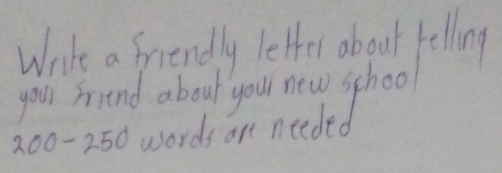 Write a friendly letter about telling
your friend about your new school
200-250 words are needed